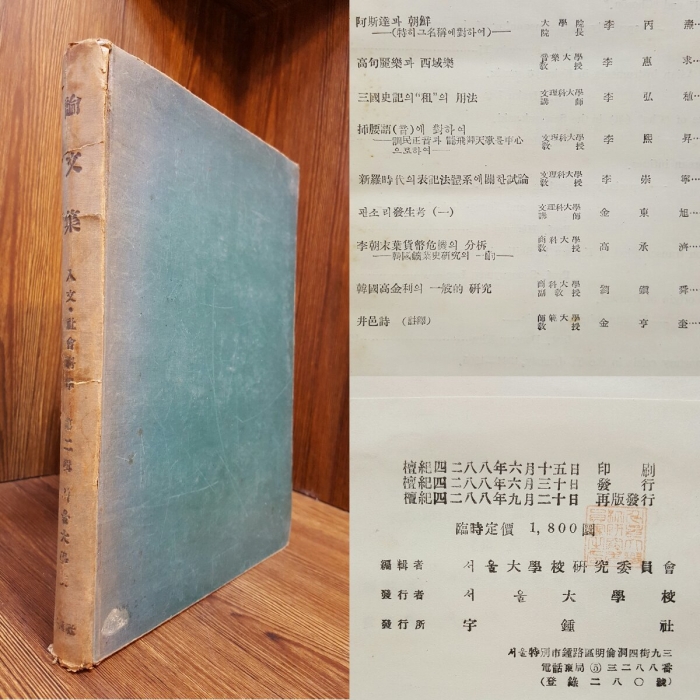 論文集
人文·社會科學 第二輯 서울大學校
阿斯達과 朝鮮
——(特히그名稱에對하여)——
大學院
院長
李 丙 燾…
高句麗樂과 西域樂
音樂大學
敎授
李 惠 求…
三國史記의“租”의 用法
文理科大學
講師
李 弘 稙…
揷腰語(音)에 對하여
——訓民正音과 龍飛御天歌를中心
으로하여——
文理科大學
敎授
李 熙 昇…
新羅時代의表記法體系에關한試論
文理科大學
敎授
李 崇 寧…
판소리發生考 (一)
文理科大學
講師
金 東 旭…
李朝末葉貨幣危機의 分析
——韓國鑛業史硏究의 一齣——
商科大學
敎授
高 承 濟…
韓國高金利의 一般的 硏究
商科大學
副敎授
劉 鎭 舜…
井邑詩 (註釋)
師範大學
敎授
金 亨 奎…
檀紀四二八八年六月十五日 印刷
檀紀四二八八年六月三十日 發行
檀紀四二八八年九月二十日 再版發行
臨時定價 1,800圜
編輯者 서울大學校硏究委員會
發行者 서울大學校
發行所 宇鍾社
서울特別市鍾路區明倫洞四街九三
電話東局⑤三二八八番
(登錄二八〇號)